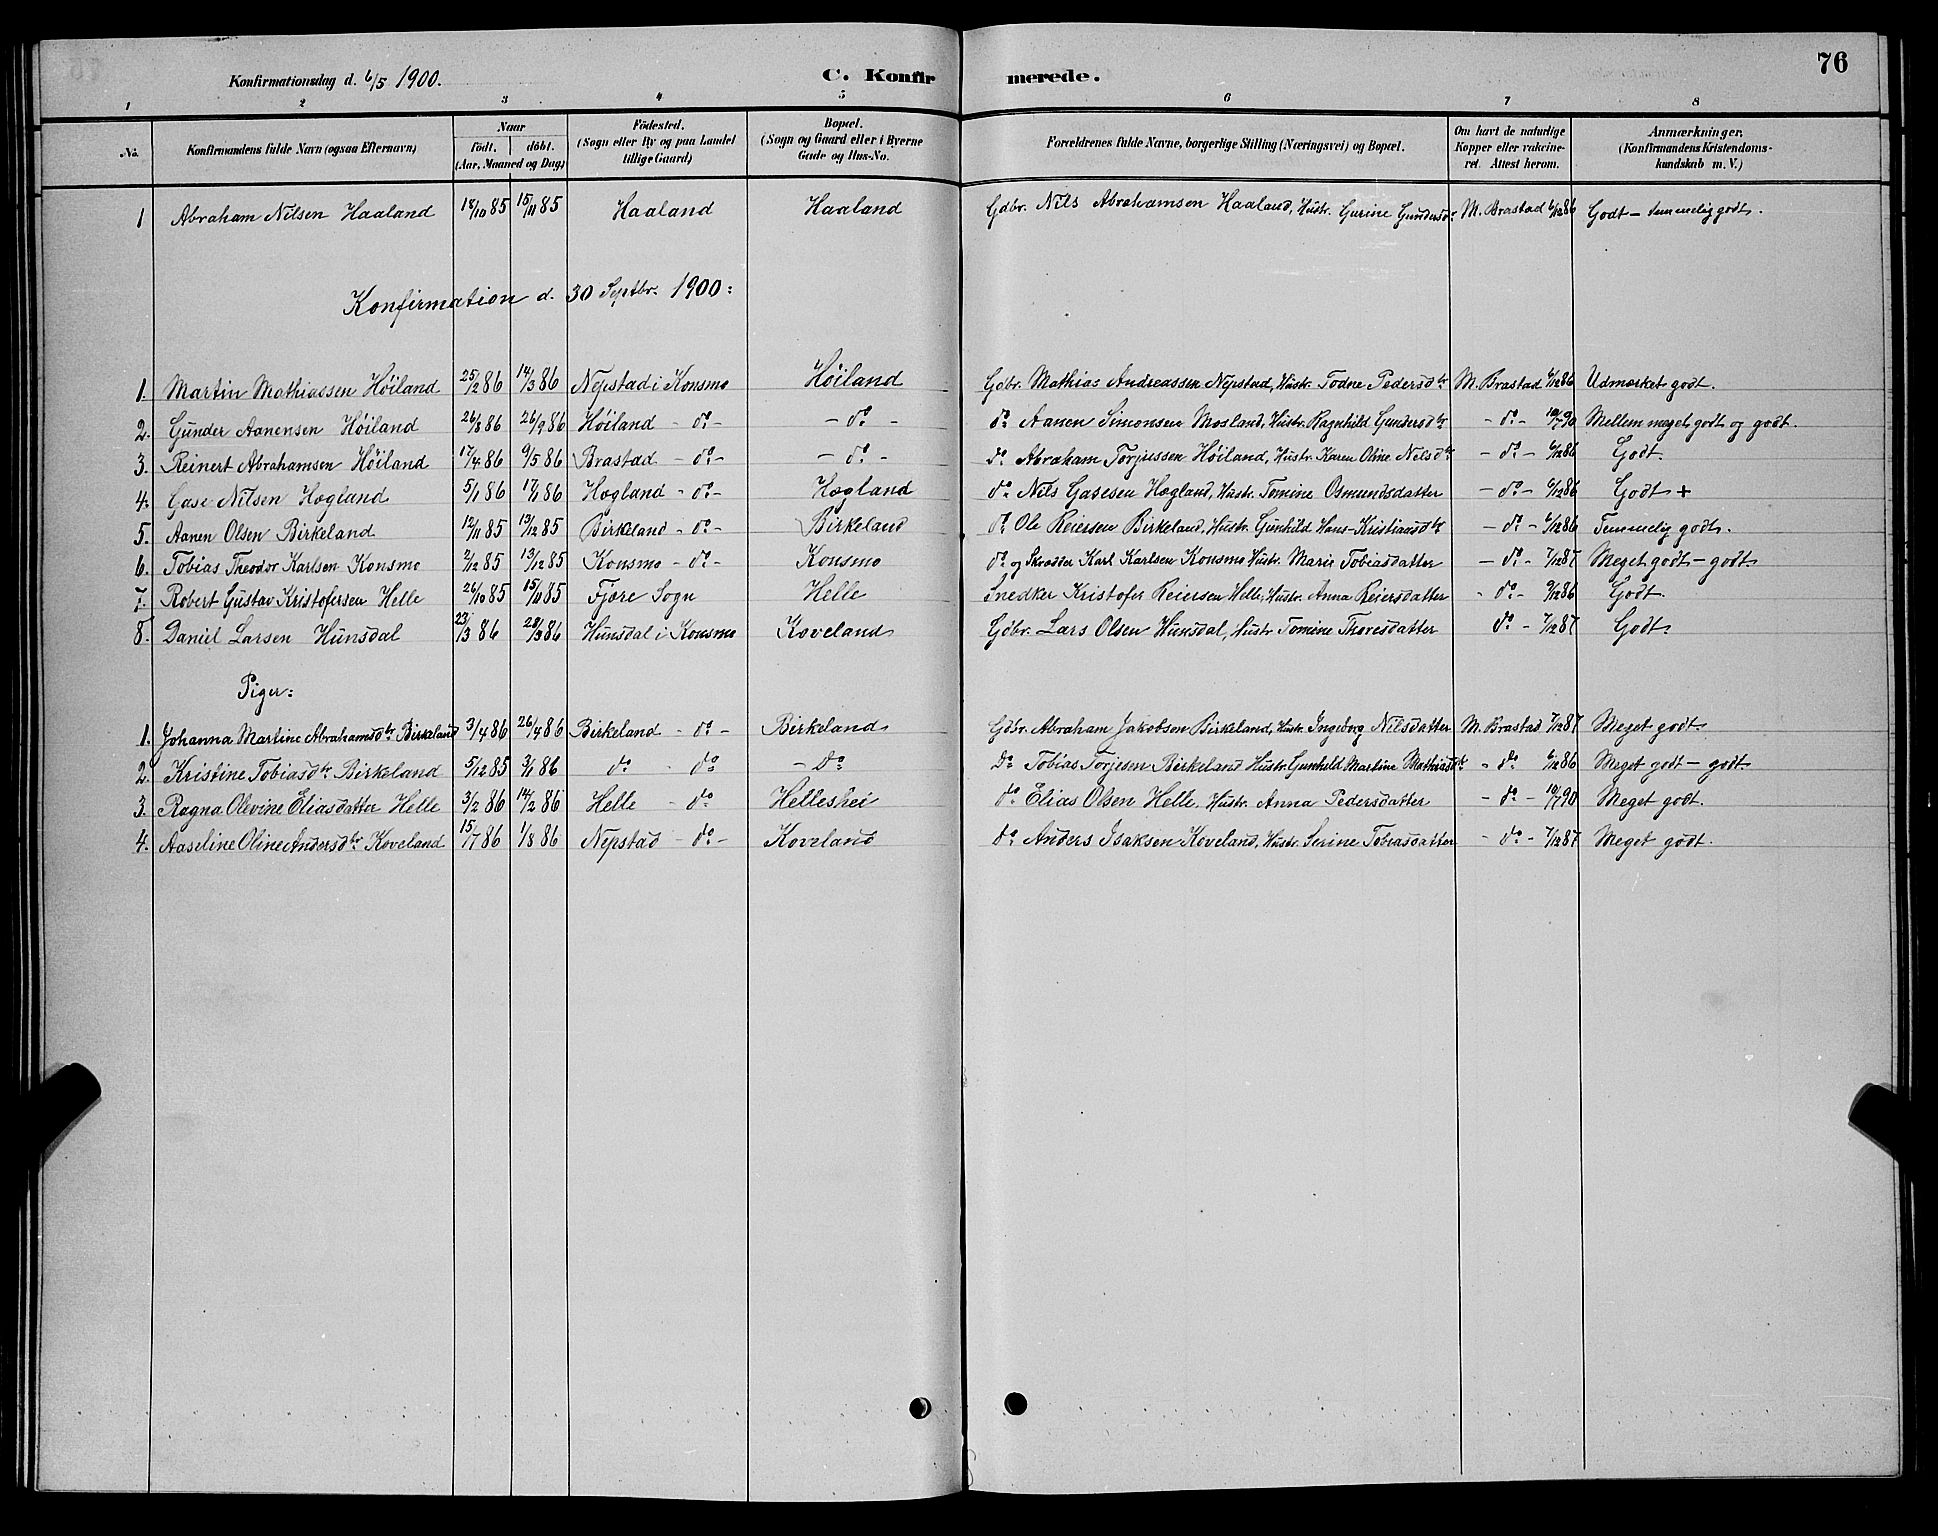 76
Konfirmationsdag d. 6/5 1900.
C. Konfirmerede.
1 2 3 4 5 6 7 8
No. | Konfirmandens fulde Navn (ogsaa Efternavn) | Naar födt. döbt. (Aar, Maaned og Dag) | Födested. (Sogn eller By og paa Landet tillige Gaard) | Bopæl. (Sogn og Gaard eller i Byerne Gade og Hus-No. | Forældrenes fulde Navne, borgerlige Stilling (Næringsvei) og Bopæl. | Om havt de naturlige Kopper eller vakcineret. Attest herom. | Anmærkninger. (Konfirmandens Kristendomskundskab m. V.)
1 Abraham Nilsen Haaland 18/10 85 15/11 85 Haaland Haaland Gdbr. Nils Abrahamsen Haaland, Hustr. Gurine Gundersdr M. Brastad 6/12 86 Godt – temmelig godt.
Konfirmation d. 30 Septbr. 1900:
1. Martin Mathiassen Höiland 25/2 86 14/3 86 Nepstad i Konsmo Höiland Gdbr. Mathias Andreassen Nepstad, Hustr. Todne Pedersdtr M. Brastad 6/12 86 Udmærket godt.
2. Gunder Aanensen Höiland 26/8 86 26/9 86 Höiland – do – – do – do Aanen Simonsen Mosland, Hustr. Ragnhild Gundersdtr – do – 10/7 90 Mellem meget godt og godt.
3. Reinert Abrahamsen Höiland 17/4 86 9/5 86 Brastad – do – – do – do Abraham Torjussen Höiland, Hustr. Karen Oline Nilsdtr – do – 6/12 86 Godt.
4. Gase Nilsen Hægland 5/1 86 17/1 86 Hægland – do – Hægland do Nils Gasesen Hægland, Hustr. Tomine Osmundsdatter – do – 6/12 86 Godt +
5. Aanen Olsen Birkeland 12/11 85 13/12 85 Birkeland – do – Birkeland do Ole Reiersen Birkeland, Hustr. Gunhild Hans-Kristiansdtr – do – 6/12 86 Temmelig godt.
6. Tobias Theodor Karlsen Konsmo 2/12 85 13/12 85 Konsmo – do – Konsmo do og Skrædder Karl Karlsen Konsmo Hustr. Marie Tobiasdatter – do – 7/12 87 Meget godt – godt
7. Robert Gustav Kristofersen Helle 26/10 85 15/11 85 Fjære Sogn Helle Snedker Kristofer Reiersen Helle, Hustr. Anna Reiersdatter – do – 9/12 86 Godt.
8. Daniel Larsen Hunsdal 23/3 86 28/3 86 Hunsdal i Konsmo Koveland Gdbr. Lars Olsen Hunsdal, Hustr Tomine Thoresdatter do – 7/12 87 Godt.
Piger:
1. Johanna Martine Abrahamsdtr Birkeland 3/4 86 26/4 86 Birkeland – do – Birkeland Gdbr. Abraham Jakobsen Birkeland, Hustr. Ingeborg Nilsdatter M. Brastad 7/12 87 Meget godt.
2. Kristine Tobiasdtr Birkeland 5/12 85 3/1 86 do – do – Do Do Tobias Torjesen Birkeland Hustr. Gunhild Martine Mathiasdtr – do 6/12 86 Meget godt – godt
3. Ragna Olevine Eliasdatter Helle 3/2 86 14/2 86 Helle – do Helleshei do Elias Olsen Helle, Hustr. Anna Pedersdatter – do – 10/7 90 Meget godt.
4. Aaseline Oline Andersdtr Koveland 15/7 86 1/8 86 Nepstad – do – Koveland do Anders Isaksen Koveland, Hustr. Serine Tobiasdatter – do – 7/12 87 Meget godt.